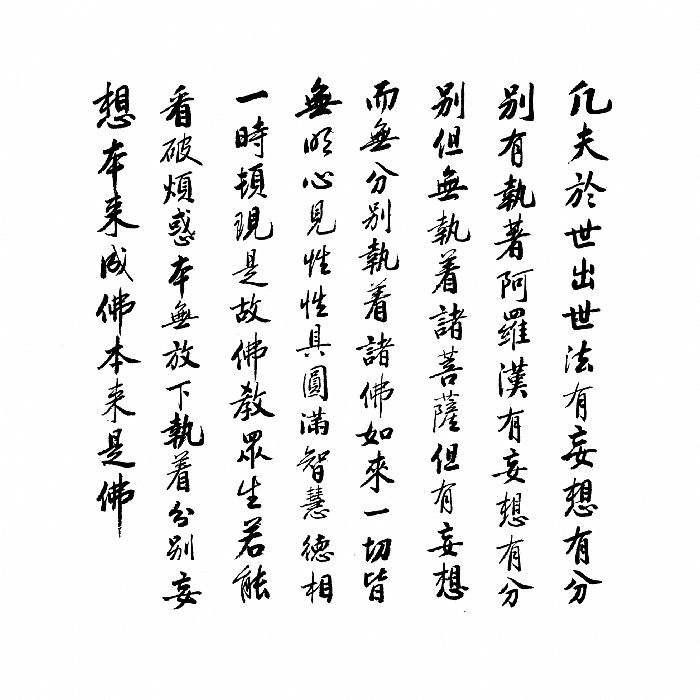 凡夫於世出世法有妄想有分
別有執著阿羅漢有妄想有分
別但無執着諸菩薩但有妄想
而無分別執着諸佛如來一切皆
無明心見性性具圓滿智慧德相
一時頓現是故佛教眾生若能
看破煩惑本無放下執着分別妄
想本来成佛本来是佛